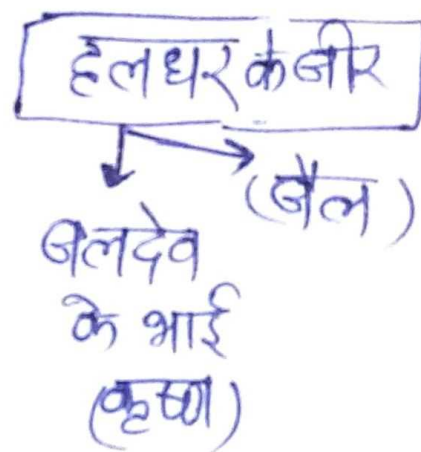 हलधर के बीर
(बैल)
बलदेव
के भाई
(कृष्ण)